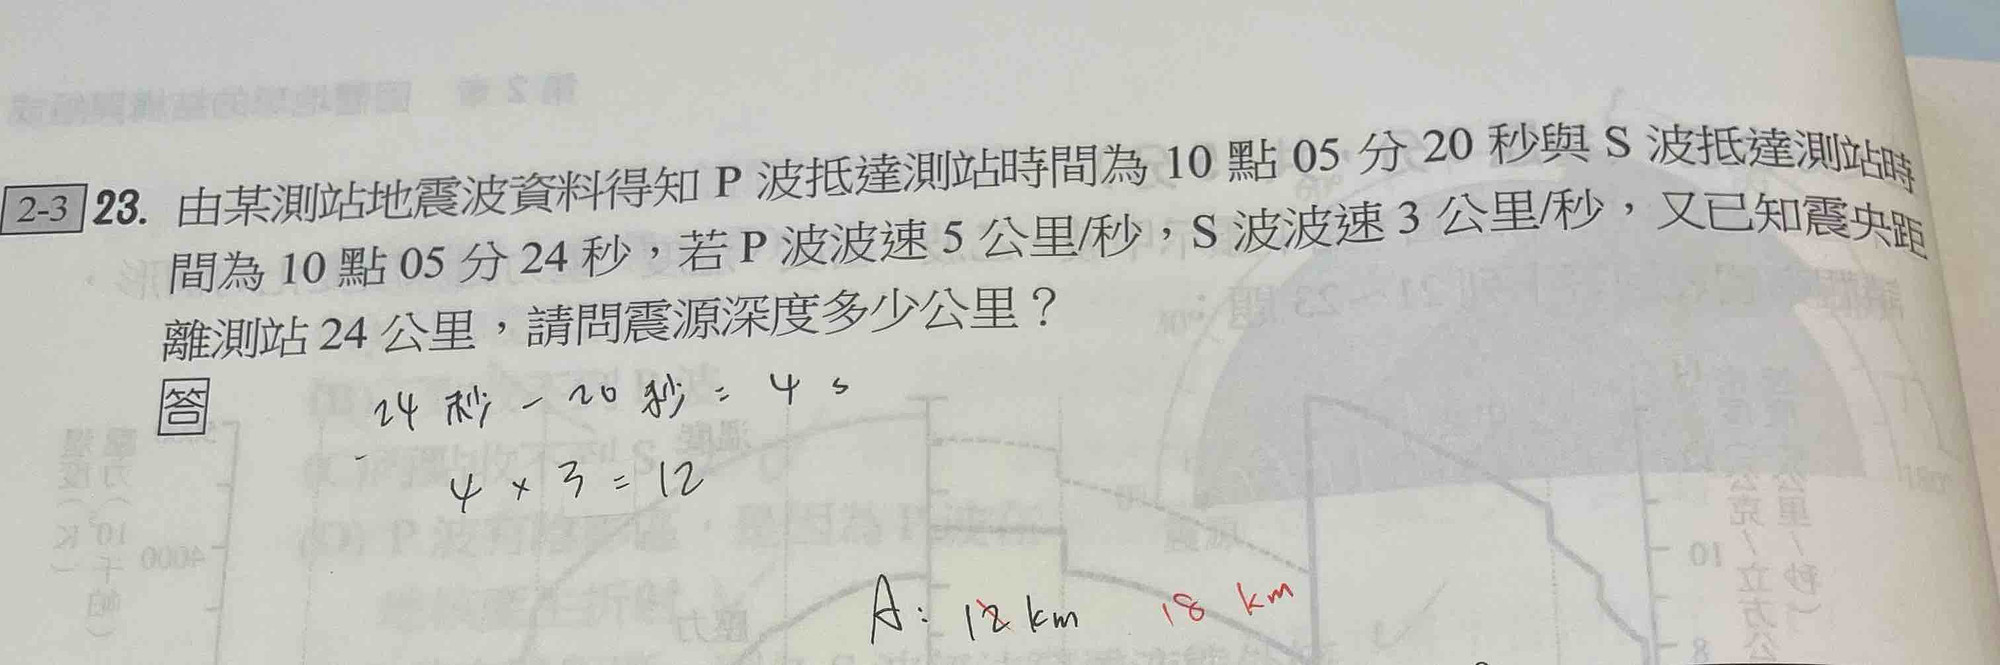 2-3 23. 由某測站地震波資料得知 P 波抵達測站時間為 10 點 05 分 20 秒與 S 波抵達測站時
間為 10 點 05 分 24 秒，若 P 波波速 5 公里/秒，S 波波速 3 公里/秒，又已知震央距
離測站 24 公里，請問震源深度多少公里？
答
24 秒 - 20 秒 = 4 s
4 × 3 = 12
A: 12 km 18 km